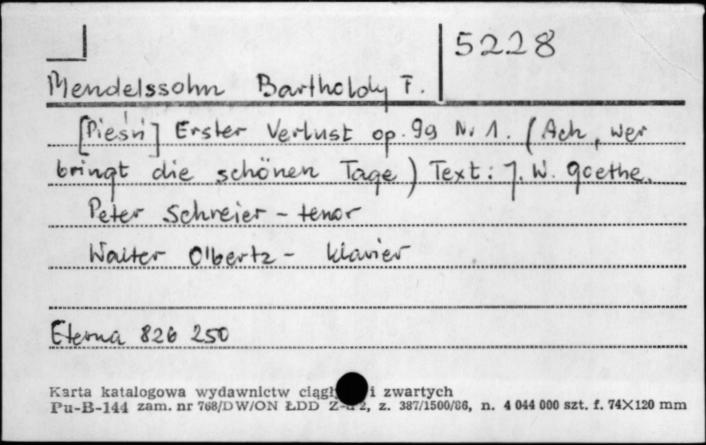 5228
Mendelssohn Bartholdy F.
[Pieśń] Erster Verlust op. 99 Nr 1. (Ach, wer
bringt die schönen Tage) Text: J. W. Goethe.
Peter Schreier - tenor
Walter Olbertz - klavier
Eterna 826 250
Karta katalogowa wydawnictw ciągł i zwartych
Pu-B-144 zam. nr 768/DW/ON ŁDD z. 387/1500/86, n. 4 044 000 szt. f. 74X120 mm